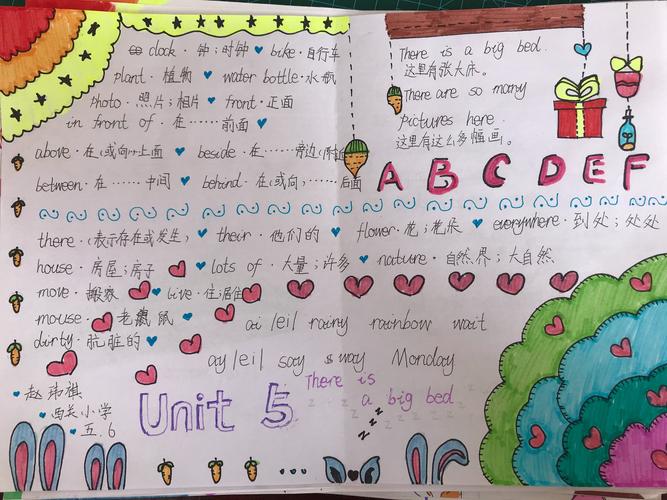 clock · 钟；时钟 bike · 自行车
plant · 植物 water bottle · 水瓶
photo · 照片；相片 front · 正面
in front of · 在……前面
above · 在(或向)…上面 beside · 在……旁边(附近)
between · 在……中间 behind · 在(或向)……后面
There is a big bed.
这里有张大床。
There are so many
pictures here.
这里有这么多幅画。
A B C D E F
there · (表示存在或发生) their · 他们的 flower · 花；花朵 everywhere · 到处；处处
house · 房屋；房子 lots of · 大量；许多 nature · 自然界；大自然
move · 搬家 live · 住；居住
mouse · 老鼠
dirty · 肮脏的
ai /ei/ rainy rainbow wait
ay /ei/ say way Monday
Unit 5
There is
a big bed.
z z z z z z z z
z z z z
赵 祺
西关小学
五.6